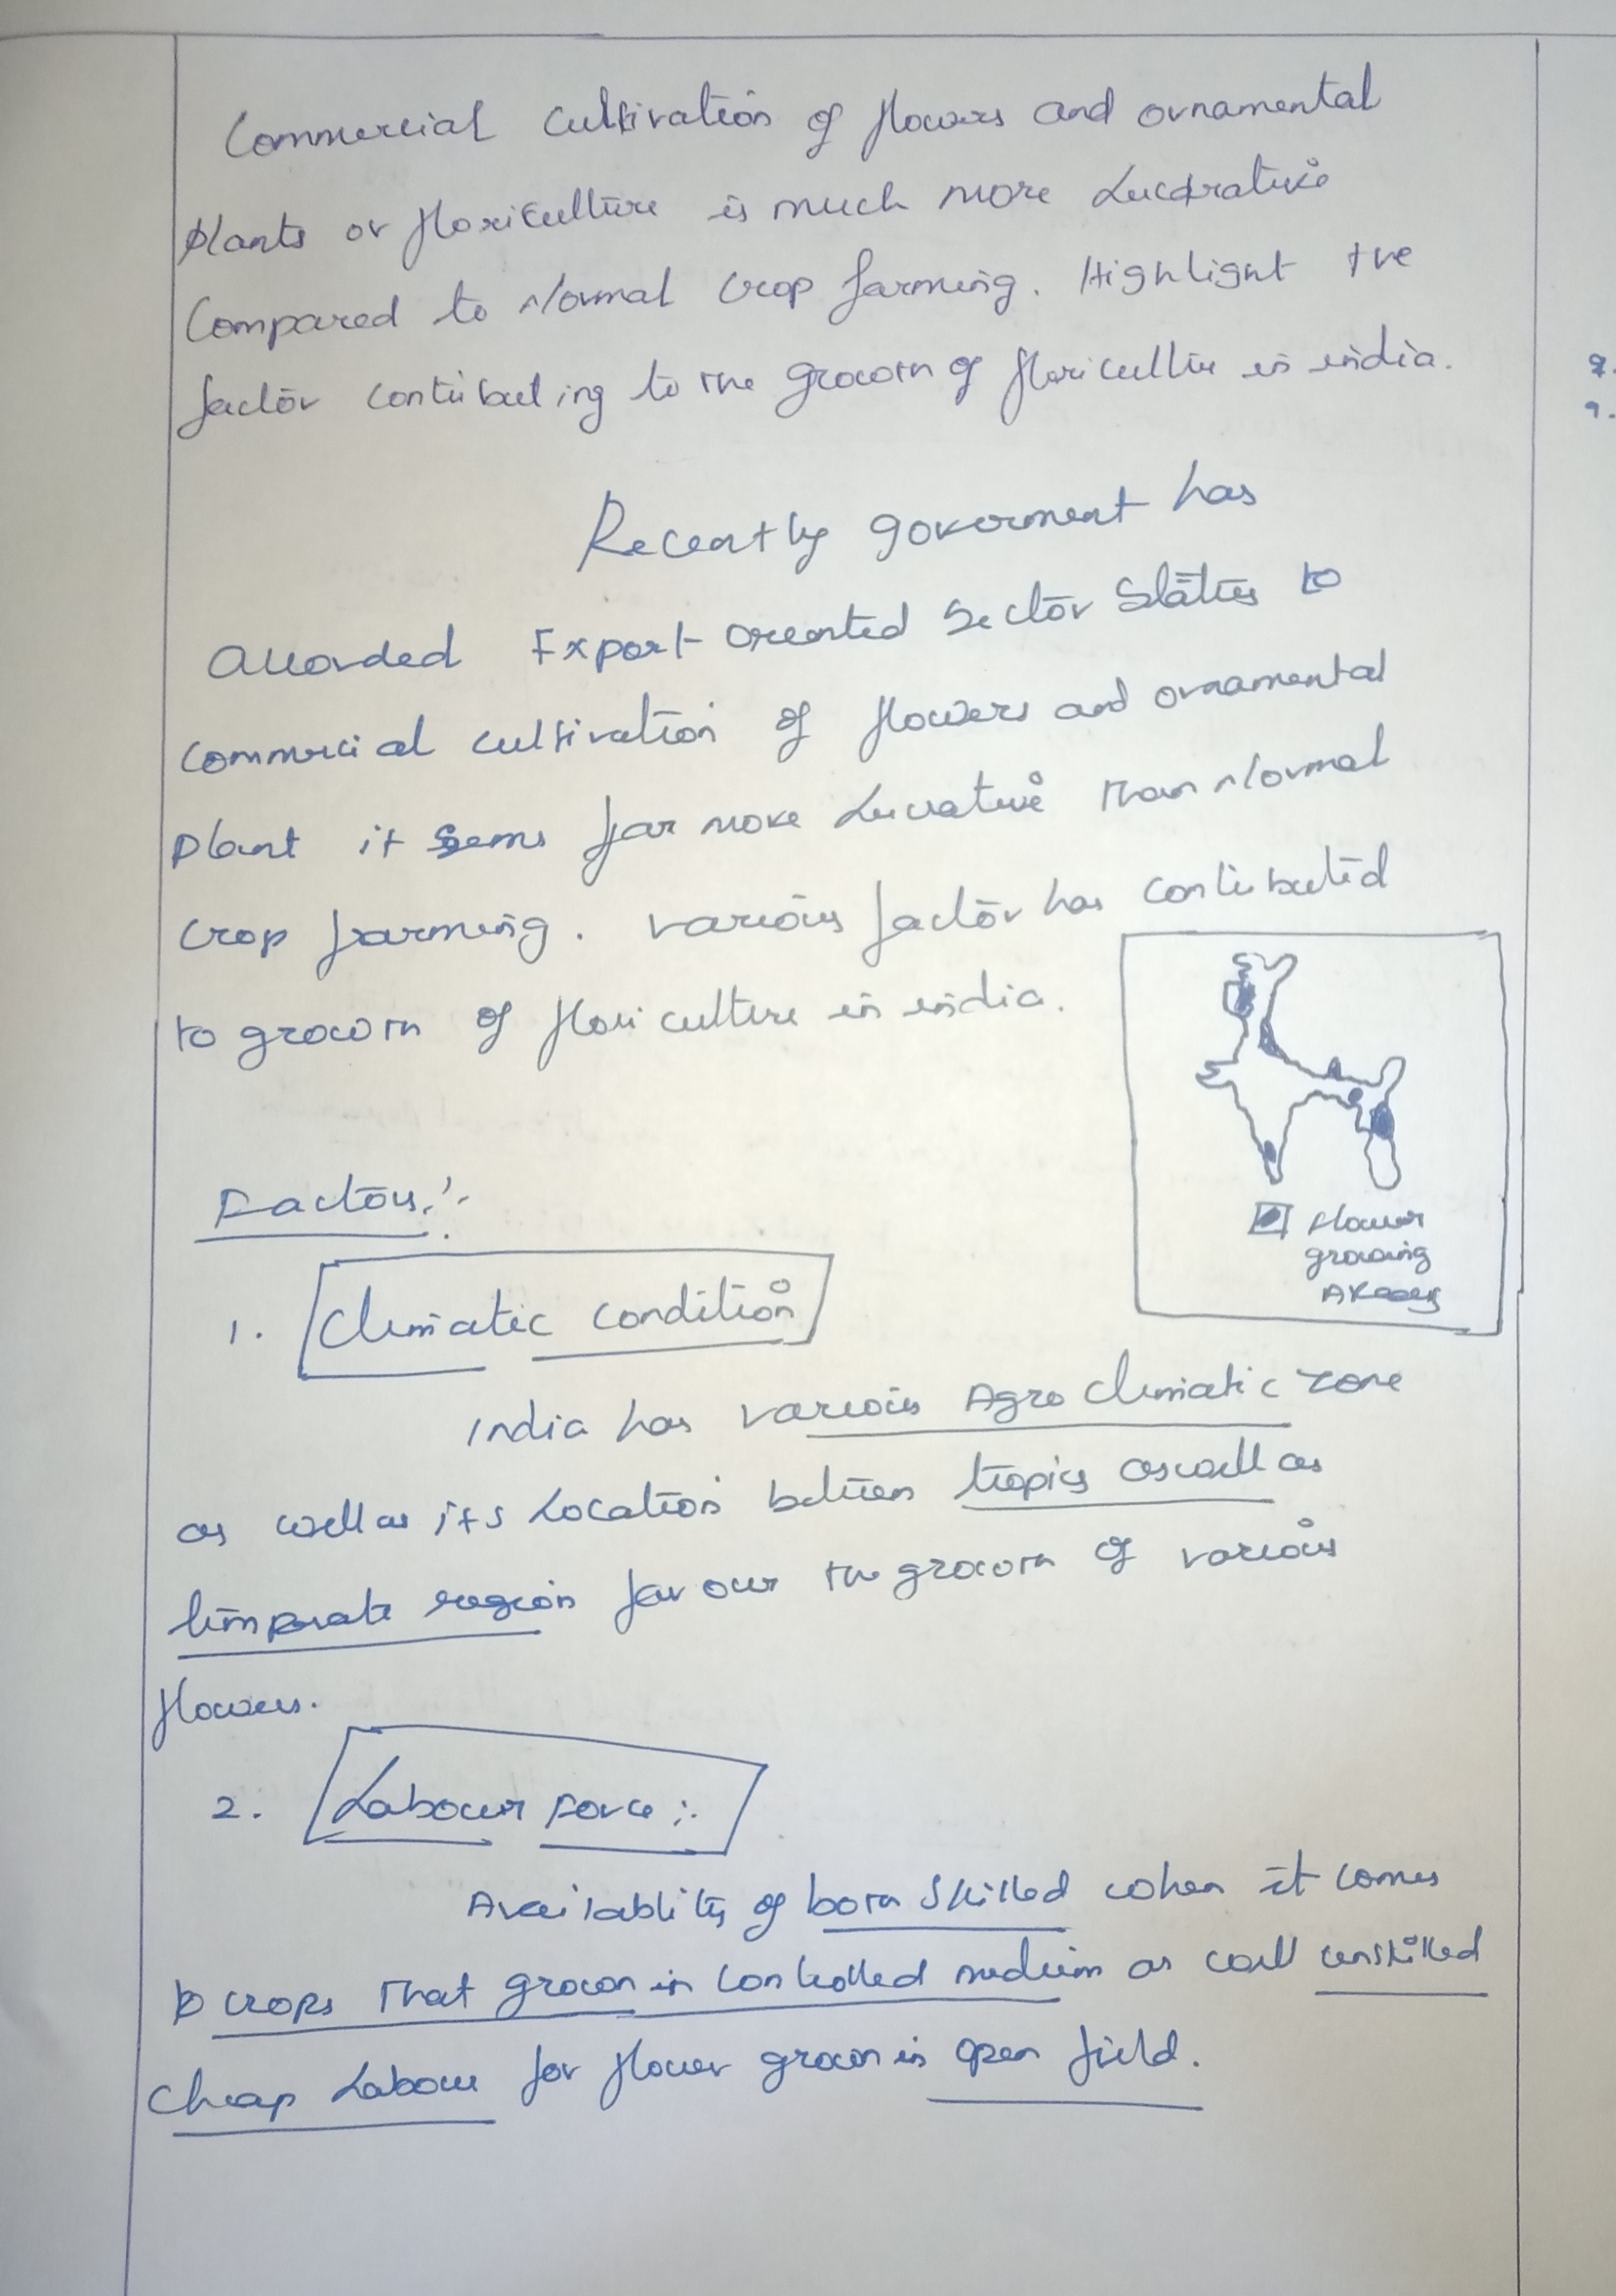 Commercial cultivation of flowers and ornamental
plants or floriculture is much more Lucdrative
Compared to Normal crop farming. Highlight the
factor contributing to the growth of floriculture in india.
Recently goverment has
allorded Export oriented Sector Status to
commercial cultivation of flowers and ornamental
plant it seems far more Lucrative than Normal
crop farming. various factor has contributed
to growth of floriculture in india.
Flower
growing
Areas
Factors:
1. Climatic condition
India has various Agro climatic zone
as well as its Location between tropics aswell as
temperate region favour the growth of various
flowers.
2. Labour Force :-
Availablity of both skilled when it comes
to crops that grown in controlled medium as well unskilled
cheap Labour for flower grown in open field.